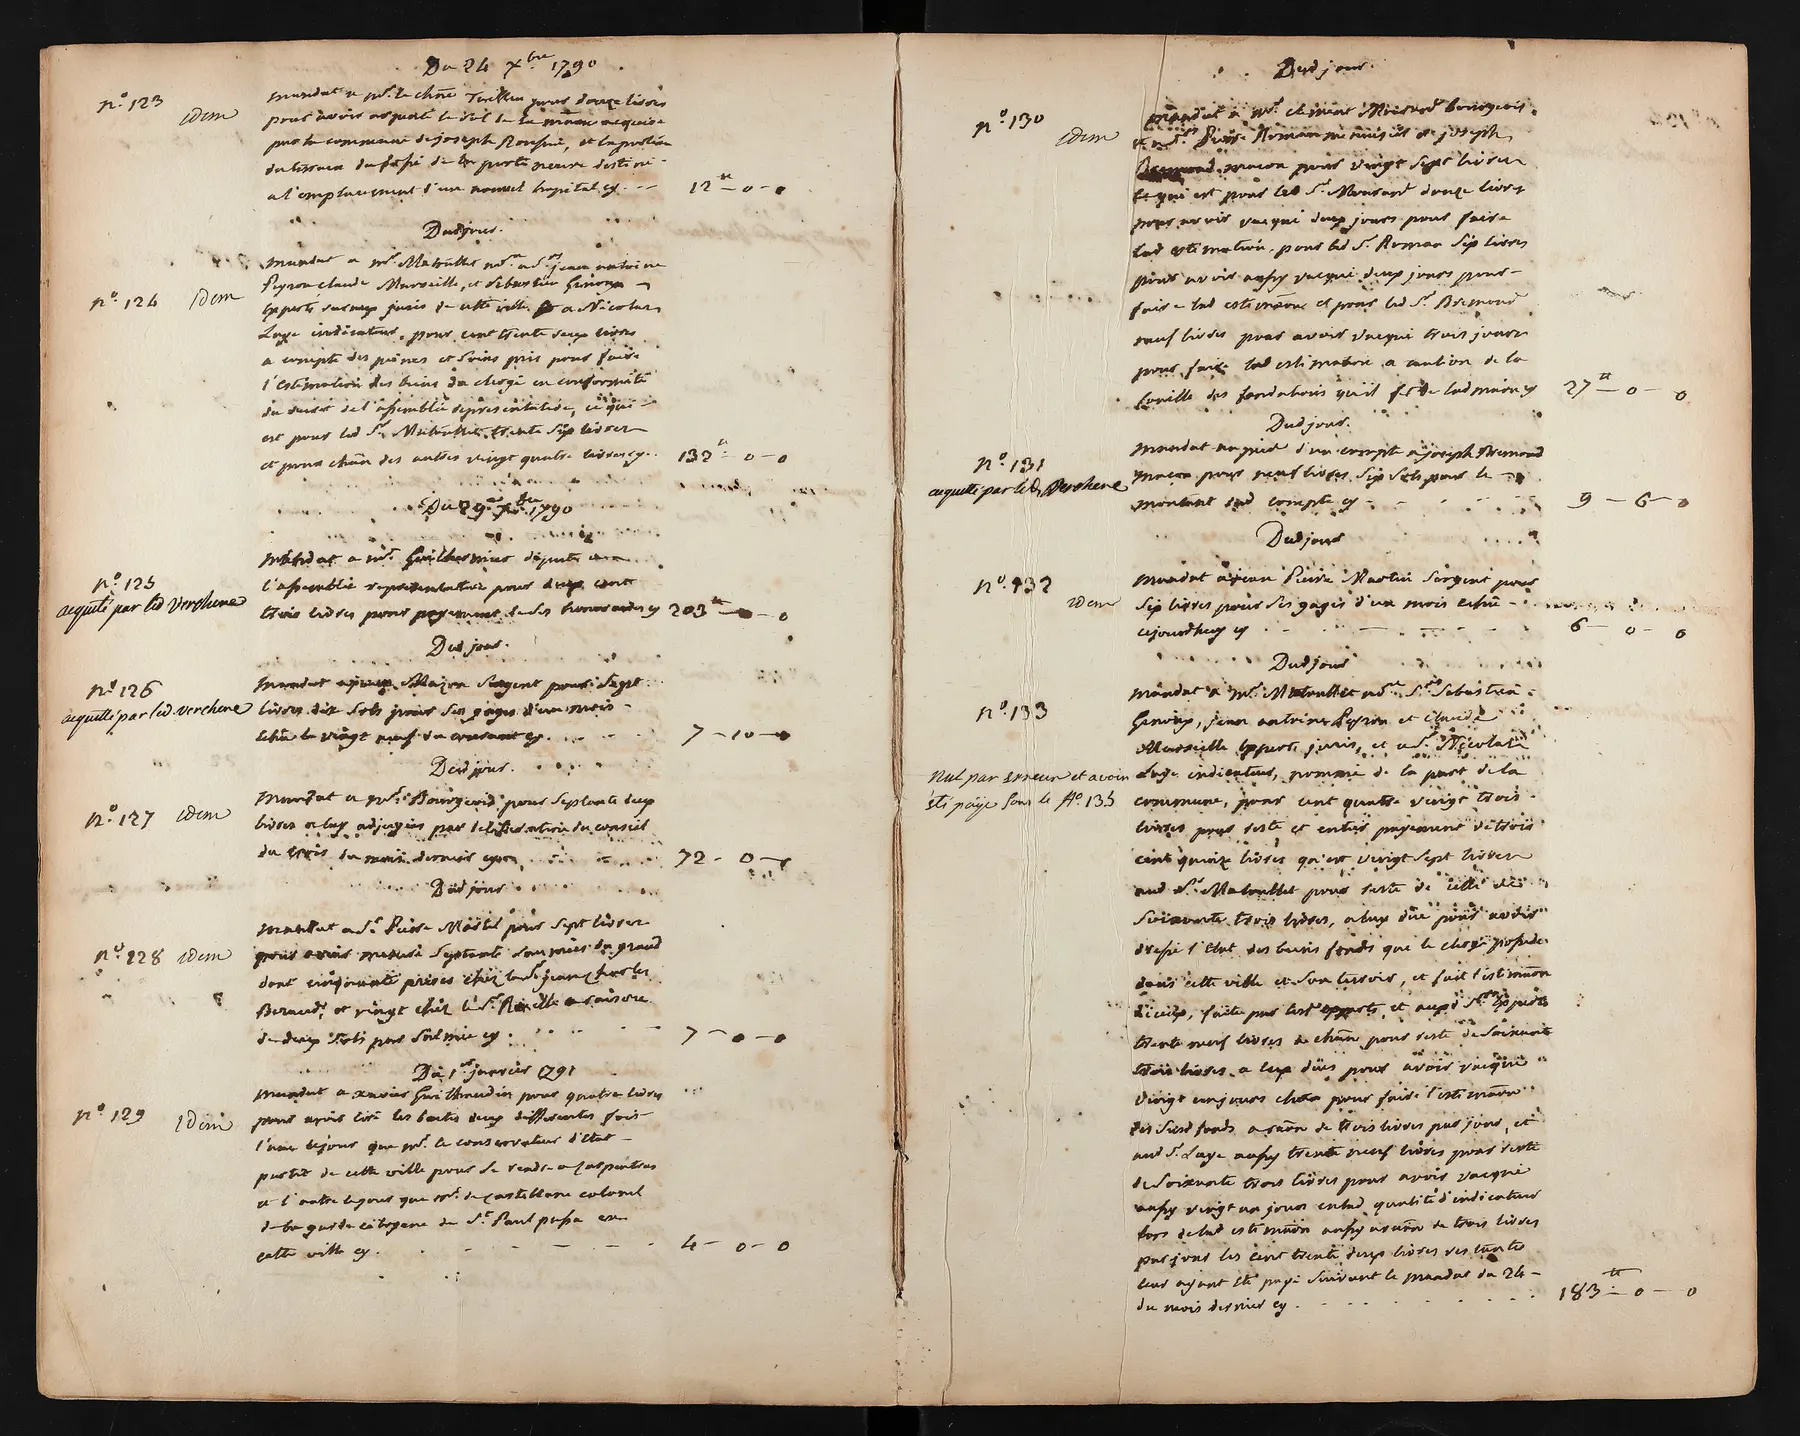 Du 24 xbre 1790
n.º 123 idem
mandat a mr. le chne Tieller pour douze livres
pour avoir acquitté le de la acquise
par la commune de joseph Rousfin, et la portion
du terrain du fossé de la porte neuve destiné
a l'emplacement d'un nouvel hopital cy. 12tt — 0 — 0
Dud jour.
n.º 124 idem
mandat a mr. Matouillet nore. a srs. jean antoine
Peyron claude Marseille, et sebastien Genoux
experts jurés de cette ville a Nicolas
Luye indicateur, pour cent trente deux livres
a compte des peines et soins pris pour faire
l'estimation des biens du clergé en conformité
du decret de l'assemblée representative, ce qui
est pour led Sr. Matouillet trente six livres
et pour chün des autres vingt quatre livres cy. 132tt — 0 — 0
Du 29 xbre 1790
n.º 125
acquitté par led verchene
mandat a mr. Guilhermier deputé a
l'assemblée representative pour deux cent
trois livres pour payement de ses honoraires cy 203tt — 0 — 0
Dud jour.
n.º 126
acquitté par led. verchene
mandat a jean Major sergent pour sept
livres dix sols pour ses gages d'un mois
echeu le vingt neuf du courant cy. 7 — 10 — 0
Dud jour.
n.º 127 idem
mandat a mr. Bourgeois pour septante deux
livres a luy adjugées par deliberation du conseil
du trois du mois dernier cy 72 — 0 — 0
Dud jour
n.º 128 idem
mandat a Sr. Pierre Martel pour sept livres
pour avoir mesuré septante saumées de grand
dont cinquante prises chez le Sr. jean charles
Beraud, et vingt chez le Sr. Rouelle a raison
de deux sols par salmée cy. 7 — 0 — 0
Du 1er janvier 1791
n.º 129 idem
mandat a xavier Guilhaudier pour quatre livres
pour avoir tiré les boetes deux differentes fois
l'une le jour que mr. le conservateur d'Etat
partit de cette ville pour se rendre a carpentras
et l'autre le jour que mr. de castellane colonel
de la garde citoyene de St. Paul passa en
cette ville cy. 4 — 0 — 0
Dud jour.
n.º 130 idem
mandat a mr. clement Moisard bourgeois
et a srs. Pierre Roman menuisier et joseph
Bremond macon pour vingt sept livres
ce qui est pour led Sr. Moisard douze livres
pour avoir vacqué deux jours pour faire
lad estimation, pour led Sr. Roman six livres
pour avoir aussy vacqué deux jours pour
faire lad estimaon et pour led Sr. Bremond
neuf livres pour avoir vacqué trois jours
pour faire lad estimation a caution de la
fouille des fondations qu'il fit de lad maion cy 27tt — 0 — 0
Dud jour.
n.º 131
acquitté par led. Verchene
mandat au pied d'un compte a joseph Bremond
macon pour neuf livres six sols pour le
montant dud compte cy 9 — 6 — 0
Dud jour
n.º 132 idem
mandat a jean Pierre Martin sergent pour
six livres pour ses gages d'un mois echu
cejourdhuy cy 6 — 0 — 0
Dud jour
n.º 133
nul par erreur et avoir
eté payé sous le No. 135
mandat a mr. Matouillet nore. Srs. Sebastien
Genoux, jean antoine Peyron et claude
Marseille experts jurés, et a Sr. Nicolas
Luye indicateur, nommé de la part de la
commune, pour cent quatre vingt trois
livres pour reste et entier payement de trois
cent quinze livres qu'est vingt sept livres
aud Sr. Matouillet pour reste de celle de
soixante trois livres, a luy due pour avoir
dressé l'Etat des biens fonds que le clergé possede
dans cette ville et son terroir, et fait l'estimaon
d'iceux, faite par lesd experts, et auxd Srs. Experts
trente neuf livres a chün pour reste de soixante
trois livres a eux dües pour avoir vacqué
vingt un jours chün pour faire l'estimaon
desd fonds a raison de trois livres par jour, et
aud Sr. Luye aussy trente neuf livres pour reste
de soixante trois livres pour avoir vacqué
aussy vingt un jours en lad. qualité d'indicateur
lors de lad estimaon aussy a raison de trois livres
par jour les cent trente deux livres restantes
leur ayant eté payé suivant le mandat du 24
du mois dernier cy. 183tt — 0 — 0